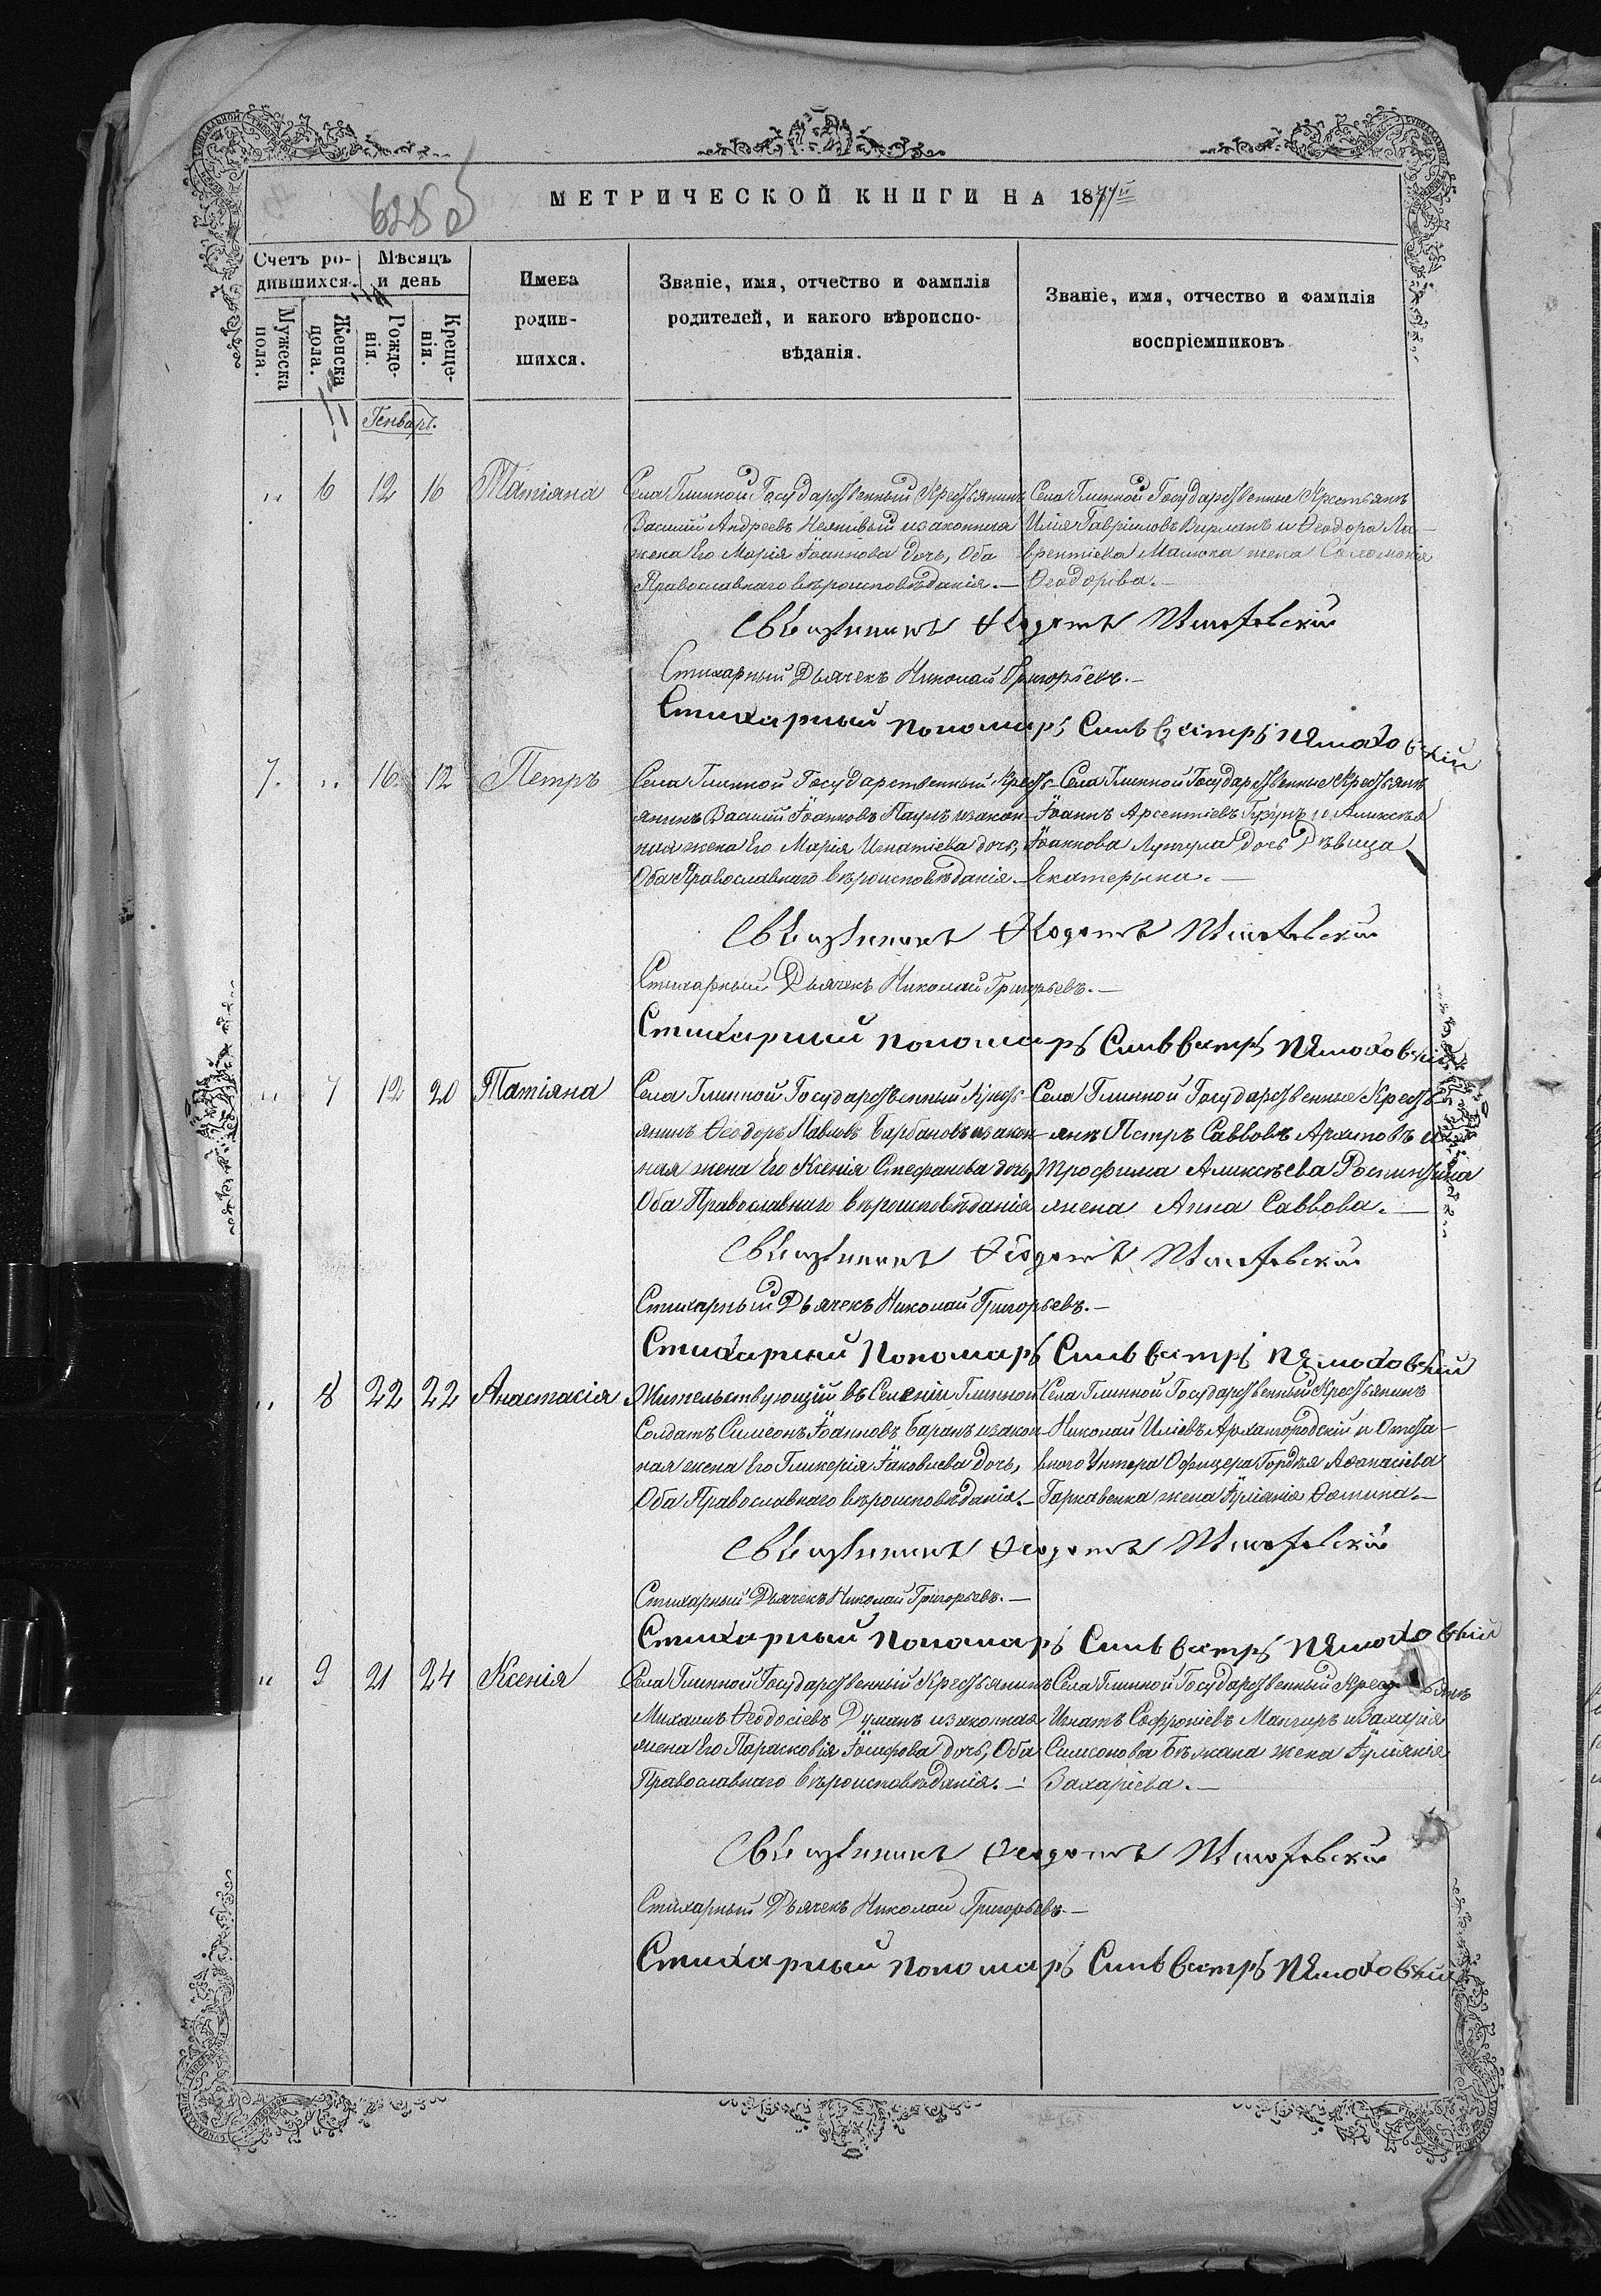 6285
МЕТРИЧЕСКОЙ КНИГИ НА 1874й
Счетъ родившихся.
Мужеска пола.
Женска пола.
Мѣсяцъ и день
Рожденія.
Крещенія.
Имена родившихся.
Званіе, имя, отчество и фамилія родителей, и какого вѣроисповѣданія.
Званіе, имя, отчество и фамилія воспріемниковъ
Генварь.
„ 6 12 16 Татіана
Села Глинной Государственный Крестьянинъ
Василій Андреевъ и законная
жена Его Марія Іоаннова дочь, Оба
Православнаго вѣроисповѣданія.—
Села Глинной Государственные Крестьянъ
Илія Гавріиловъ Вирланъ и Ѳеодора Ла-
врентіева жена Соломонія
Ѳеодорова.—
Священникъ Ѳеодотъ
Стихарный Дьячекъ Николай Григорьевъ.—
Стихарный пономарь Сильвестръ
7. „ 16. 12 Петръ
Села Глинной Государственный Кресть-
янинъ Василій Іоанновъ и закон-
ная жена Его Марія Игнатіева дочь,
Оба Православнаго вѣроисповѣданія.—
Села Глинной Государственные Крестьянъ
Іоаннъ Арсентіевъ и Алиексѣя
Іоаннова дочь Дѣвица
Екатерына.—
Священникъ Ѳеодотъ
Стихарный Дьячекъ Николай Григорьевъ.—
Стихарный пономарь Сильвестръ
„ 7 12 20 Татіяна
Села Глинной Государственный Кресть-
янинъ Ѳеодоръ Павловъ Барбановъ и закон-
ная жена Его Ксенія Стефанова дочь,
Оба Православнаго вѣроисповѣданія
Села Глинной Государственные Кресть-
янъ Петръ Саввовъ Архиповъ и
Трофима Алиексѣева
жена Анна Саввова.—
Священникъ Ѳеодотъ
Стихарный Дьячекъ Николай Григорьевъ.—
Стихарный Пономарь Сильвестръ
„ 8 22 22 Анастасія
Жительствующій въ Селеніи Глинной
Солдатъ Симеонъ Іоанновъ Баранъ и закон-
ная жена Его Гликерія Іаковлева дочь,
Оба Православнаго вѣроисповѣданія.—
Села Глинной Государственный Крестьянинъ
Николай Иліевъ Архангородскій и Отста-
внаго Унтера Офицера Гордѣя Аѳанасіева
Гаркавенка жена Іуліанія Ѳомина.—
Священникъ Ѳеодотъ
Стихарный Дьячекъ Николай Григорьевъ.—
Стихарный пономарь Сильвестръ
„ 9 21 24 Ксенія
Села Глинной Государственный Крестьянинъ
Михаилъ Ѳеодосіевъ Думанъ и законная
жена Его Парасковія Іосифова дочь, Оба
Православнаго вѣроисповѣданія.—
Села Глинной Государственный Крестьянъ
Игнатъ Софроніевъ и Захарія
Симеонова Бѣжана жена Іуліянія
Захаріева.—
Священникъ Ѳеодотъ
Стихарный Дьячекъ Николай Григорьевъ.—
Стихарный пономарь Сильвестръ